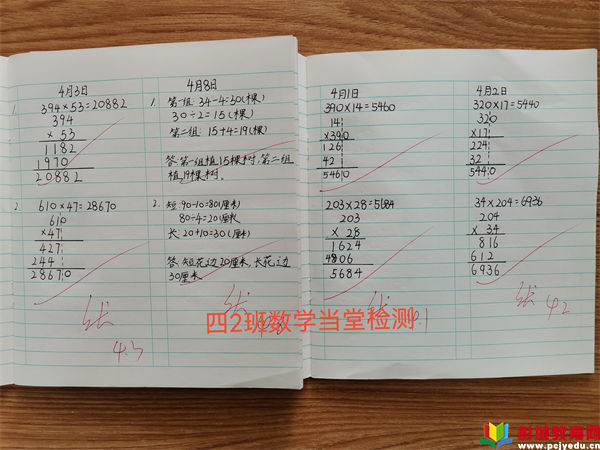 4月3日
1. 394×53=20882
394
×53
1182
1970
20882
2. 610×47=28670
610
×47
427
244
28670
张
4.3
4月8日
1. 第一组:34-4=30(棵)
30÷2=15(棵)
第二组:15+4=19(棵)
答:第一组植15棵树,第二组
植19棵树.
2. 短:90-10=80(厘米)
80÷4=20(厘米)
长:20+10=30(厘米)
答:短花边20厘米,长花边
30厘米.
张
4月1日
390×14=5460
14
×390
126
42
5460
203×28=5684
203
×28
1624
406
5684
张
4.1
4月2日
320×17=5440
320
×17
224
32
5440
34×204=6936
204
×34
816
612
6936
张
4.2
四2班数学当堂检测
彭城教育网
www.pcjyedu.cn